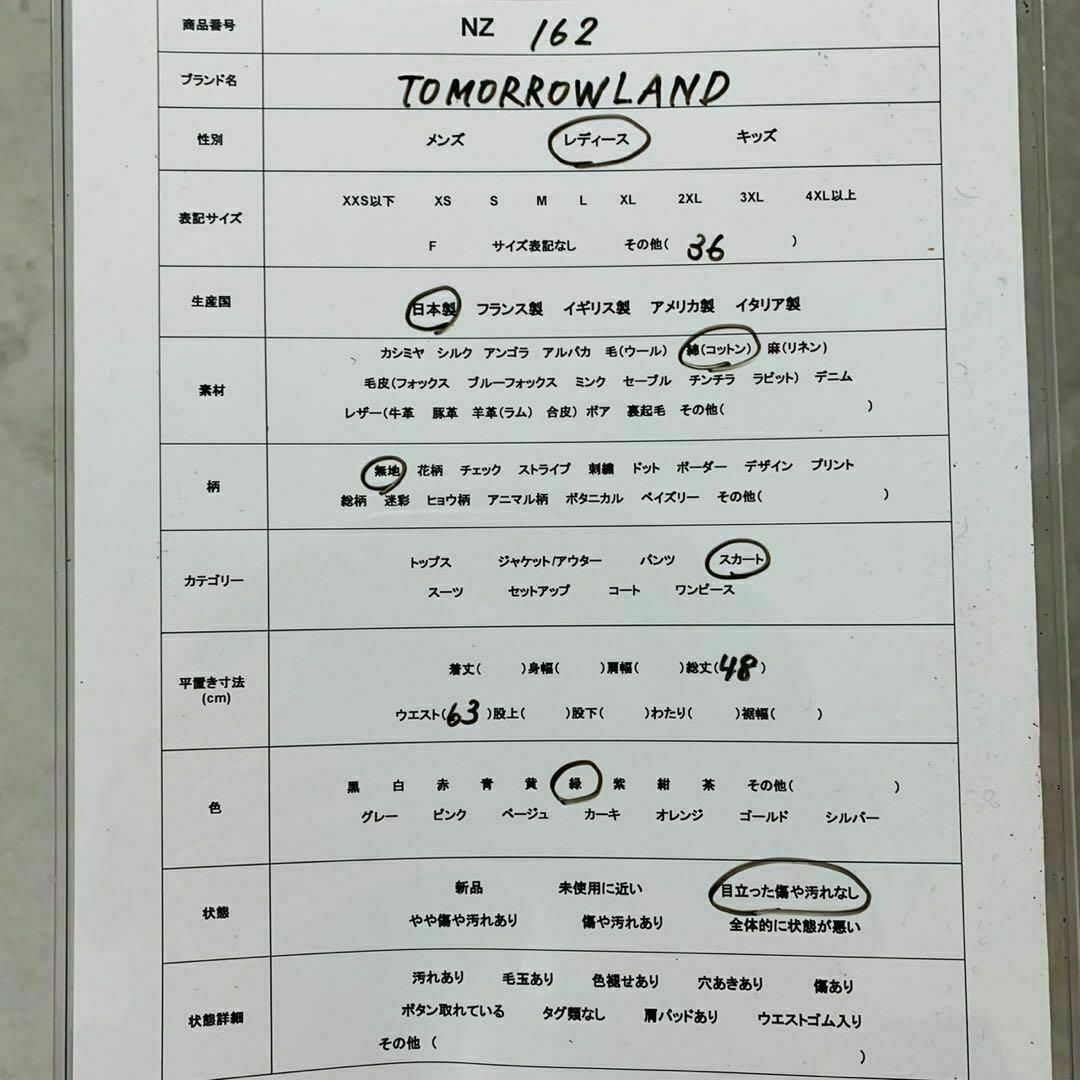 商品番号 NZ 162
ブランド名 TOMORROWLAND
性別 メンズ レディース キッズ
表記サイズ
XXS以下 XS S M L XL 2XL 3XL 4XL以上
F サイズ表記なし その他( 36 )
生産国 日本製 フランス製 イギリス製 アメリカ製 イタリア製
素材
カシミヤ シルク アンゴラ アルパカ 毛(ウール) 綿(コットン) 麻(リネン)
毛皮(フォックス ブルーフォックス ミンク セーブル チンチラ ラビット) デニム
レザー(牛革 豚革 羊革(ラム) 合皮) ボア 裏起毛 その他( )
柄
無地 花柄 チェック ストライプ 刺繍 ドット ボーダー デザイン プリント
総柄 迷彩 ヒョウ柄 アニマル柄 ボタニカル ペイズリー その他( )
カテゴリー
トップス ジャケット/アウター パンツ スカート
スーツ セットアップ コート ワンピース
平置き寸法
(cm)
着丈( )身幅( )肩幅( )総丈(48)
ウエスト(63)股上( )股下( )わたり( )裾幅( )
色
黒 白 赤 青 黄 緑 紫 紺 茶 その他( )
グレー ピンク ベージュ カーキ オレンジ ゴールド シルバー
状態
新品 未使用に近い 目立った傷や汚れなし
やや傷や汚れあり 傷や汚れあり 全体的に状態が悪い
状態詳細
汚れあり 毛玉あり 色褪せあり 穴あきあり 傷あり
ボタン取れている タグ類なし 肩パッドあり ウエストゴム入り
その他 ( )